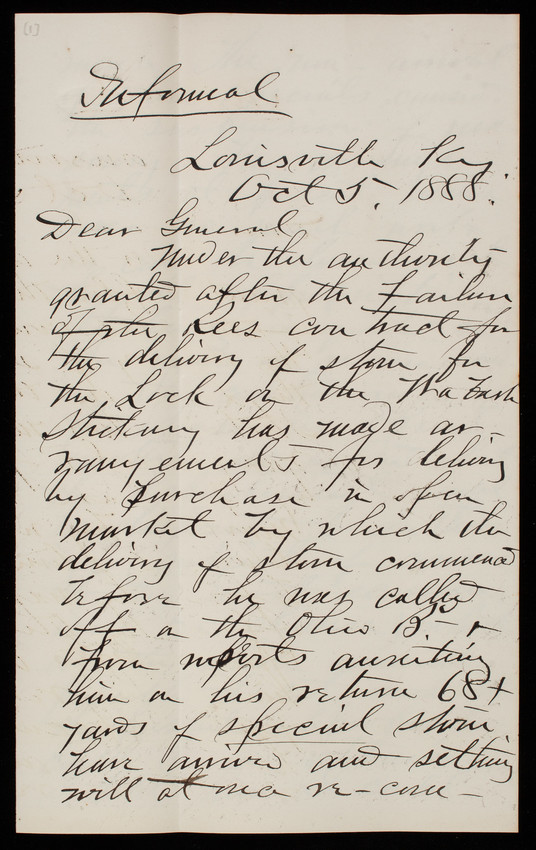 [1]
Informal
Louisville Ky
Oct 5, 1888.
Dear General
Under the authority
granted after the Failure
of the Lees contract for
the delivery of stone for
the Lock on the Wabash
Stickney has made ar-
rangements for delivery
by purchase in open
market by which the
delivery of stone commenced
before he was called
off on the Ohio B &
from reports awaiting
him on his return 68+
yards of special stone
have arrived and setting
will at once re-com-